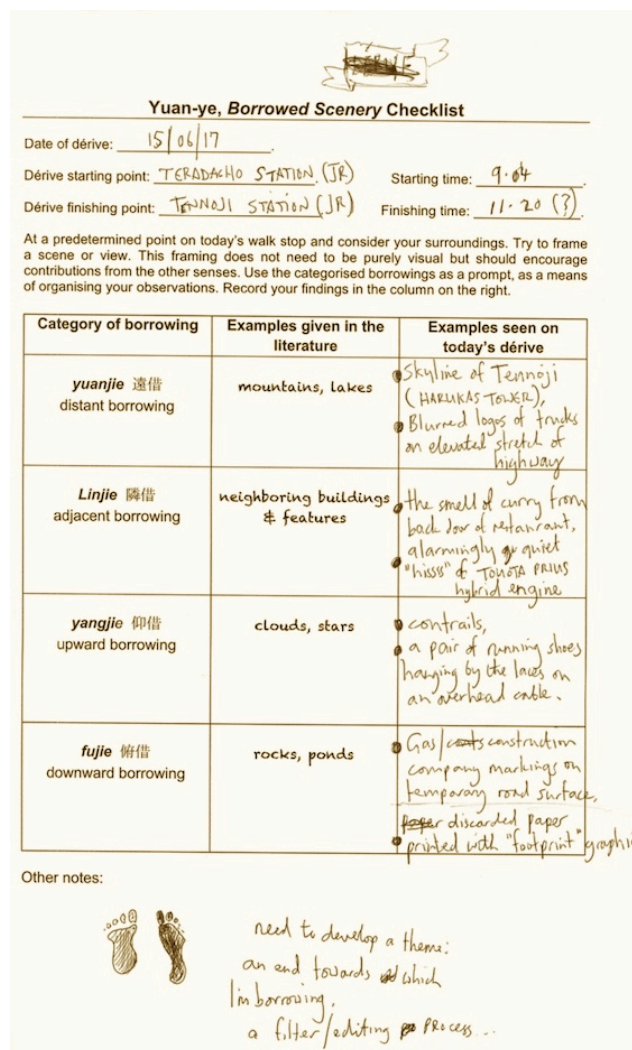 Yuan-ye, Borrowed Scenery Checklist
Date of dérive: 15/06/17
Dérive starting point: TERADACHO STATION (JR) Starting time: 9.04
Dérive finishing point: TENNOJI STATION (JR) Finishing time: 11.20 (?)
At a predetermined point on today's walk stop and consider your surroundings. Try to frame
a scene or view. This framing does not need to be purely visual but should encourage
contributions from the other senses. Use the categorised borrowings as a prompt, as a means
of organising your observations. Record your findings in the column on the right.
Category of borrowing
Examples given in the
literature
Examples seen on
today's dérive
yuanjie 遠借
distant borrowing
mountains, lakes
Skyline of Tennoji
(HARUKAS TOWER),
Blurred logos of trucks
on elevated stretch of
highway
Linjie 隣借
adjacent borrowing
neighboring buildings
& features
the smell of curry from
back door of restaurant,
alarmingly quiet
"hisss" of TOYOTA PRIUS
hybrid engine
yangjie 仰借
upward borrowing
clouds, stars
contrails,
a pair of running shoes
hanging by the laces on
an overhead cable.
fujie 俯借
downward borrowing
rocks, ponds
Gas/construction
company markings on
temporary road surface,
discarded paper
printed with "footprint" graphi
Other notes:
need to develop a theme:
an end towards which
I'm borrowing.
a filter/editing PROCESS...